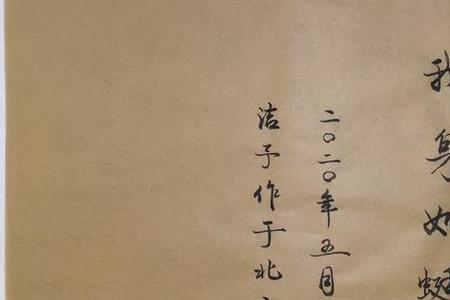 我身如
二〇二〇年五月
洁予作于北